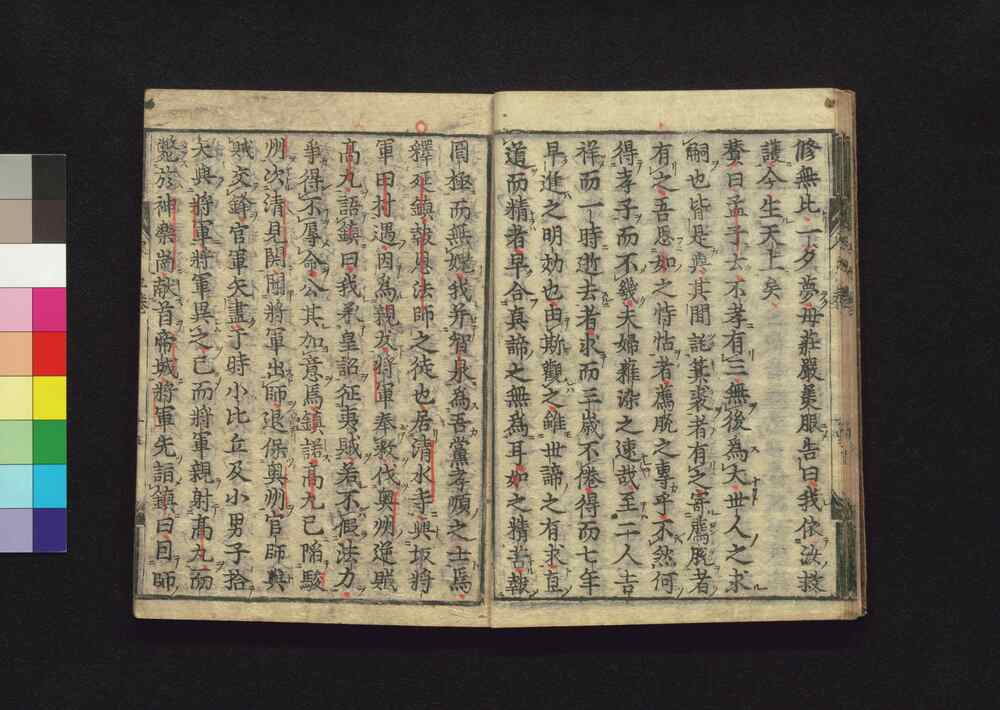 修無比一夕夢母莊嚴美服告曰我依汝救
護今生天上矣
賛曰孟子云不孝有三無後爲大世人之求
嗣也皆是矣其間託箕裘者有之寄薦脫者
有之吾思如之恃怙者薦脫之專乎不然何
得孝子而不幾夫婦雜染之速哉至二人吉
祥而一時逝去者求而三歲不倦得而七年
早進之明効也由斯觀之雖世諦之有求直
道而精者早合真諦之無為耳如之精苦報
罔極而無媿我并智泉為吾黨孝順之士焉
釋延鎮報恩法師之徒也居清水寺與坂將
軍田村遇因為親友將軍奉敕伐奥州逆賊
高丸語鎮曰我承皇詔征夷賊若不假法力
爭得不辱命公其加意焉鎮諾高丸已陥駿
州次清見関聞將軍出師退保奥州官師與
賊交鋒官軍矢盡于時小比丘及小男子拾
矢與將軍將軍異之已而將軍親射高丸而
斃於神樂崗献首帝城將軍先詣鎮曰因師